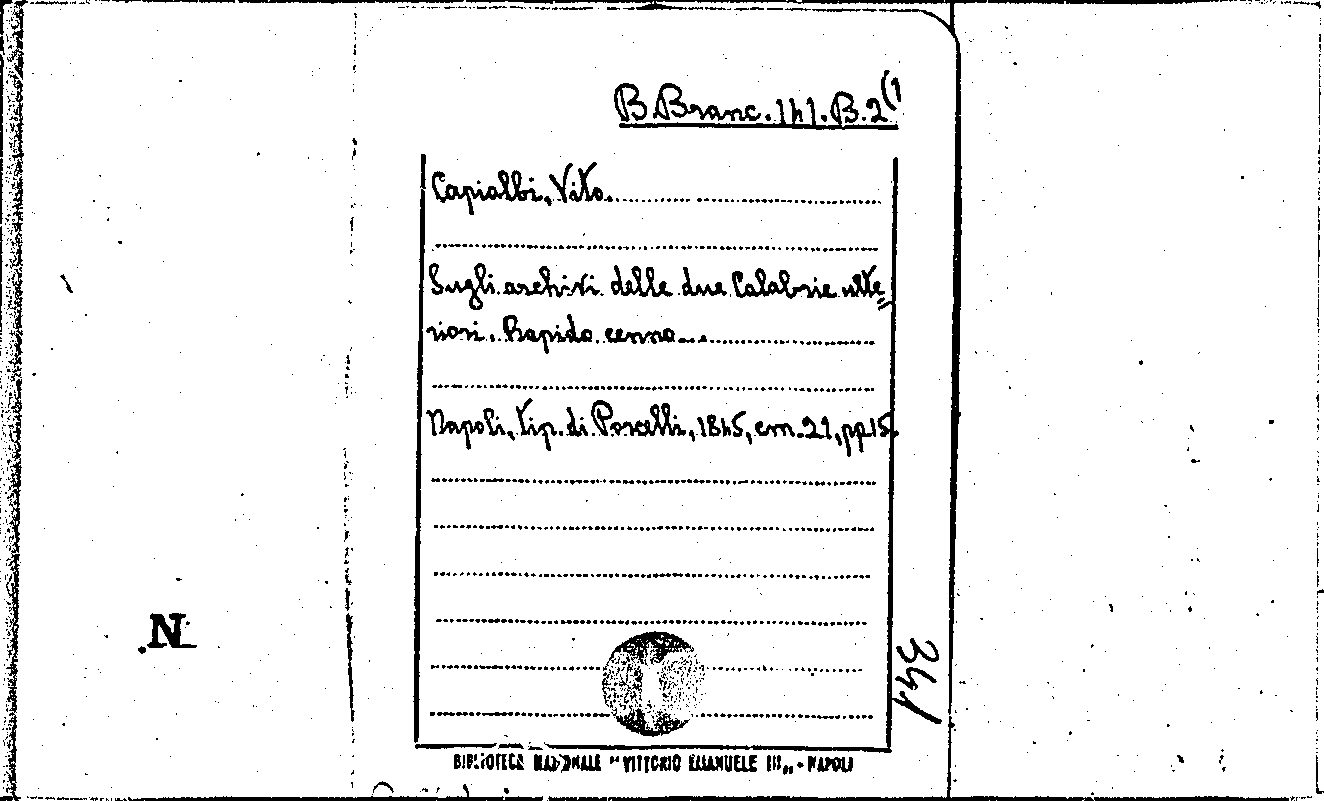 B. Branc. 141. B. 2 (1
Capialbi, Vito.
Sugli archivi delle due Calabrie ulte=
riori. Rapido cenno...
Napoli, tip. di Porcelli, 1845, cm. 21, pp 15.
N
341
BIBLIOTECA NAZIONALE "VITTORIO EMANUELE III„ - NAPOLI